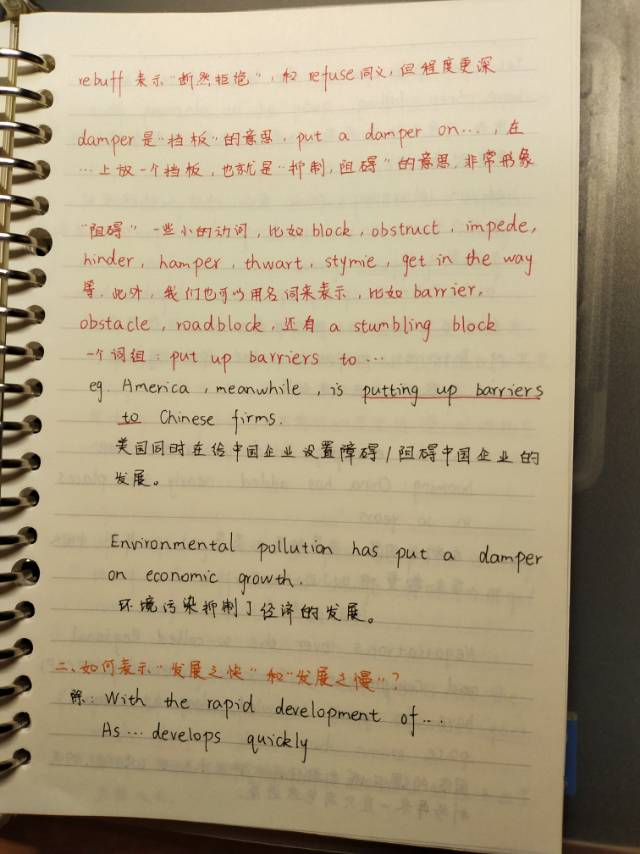 rebuff 表示“断然拒绝”, 和 refuse 同义, 但程度更深
damper 是“挡板”的意思, put a damper on…, 在
…上放一个挡板, 也就是“抑制, 阻碍”的意思, 非常形象
“阻碍” 一些小的动词, 比如 block, obstruct, impede,
hinder, hamper, thwart, stymie, get in the way
等. 此外, 我们也可以用名词来表示, 比如 barrier,
obstacle, roadblock, 还有 a stumbling block
一个词组: put up barriers to …
eg. America, meanwhile, is putting up barriers
to Chinese firms.
美国同时在给中国企业设置障碍/阻碍中国企业的
发展。
Environmental pollution has put a damper
on economic growth.
环境污染抑制了经济的发展。
二、如何表示“发展之快”和“发展之慢”?
除: With the rapid development of…
As … develops quickly